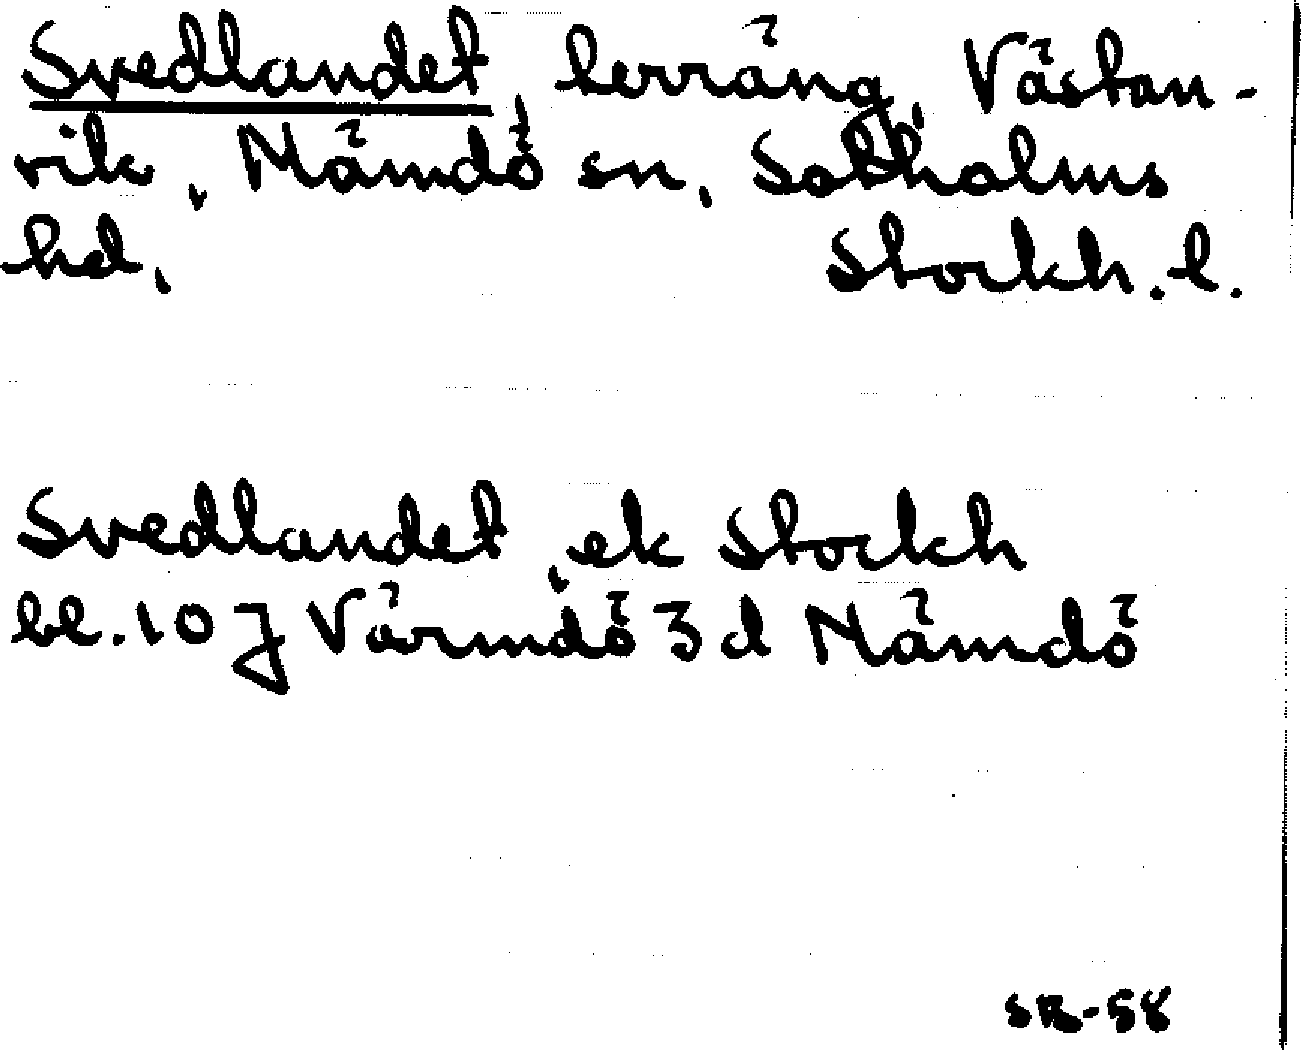 Svedlandet, terräng, Västan-
vik, Nämdö sn, Sotholms
hd, Stockh. l.
Svedlandet, ek Stockh
bl. 10 J Värmdö 3 d Nämdö
SR-58